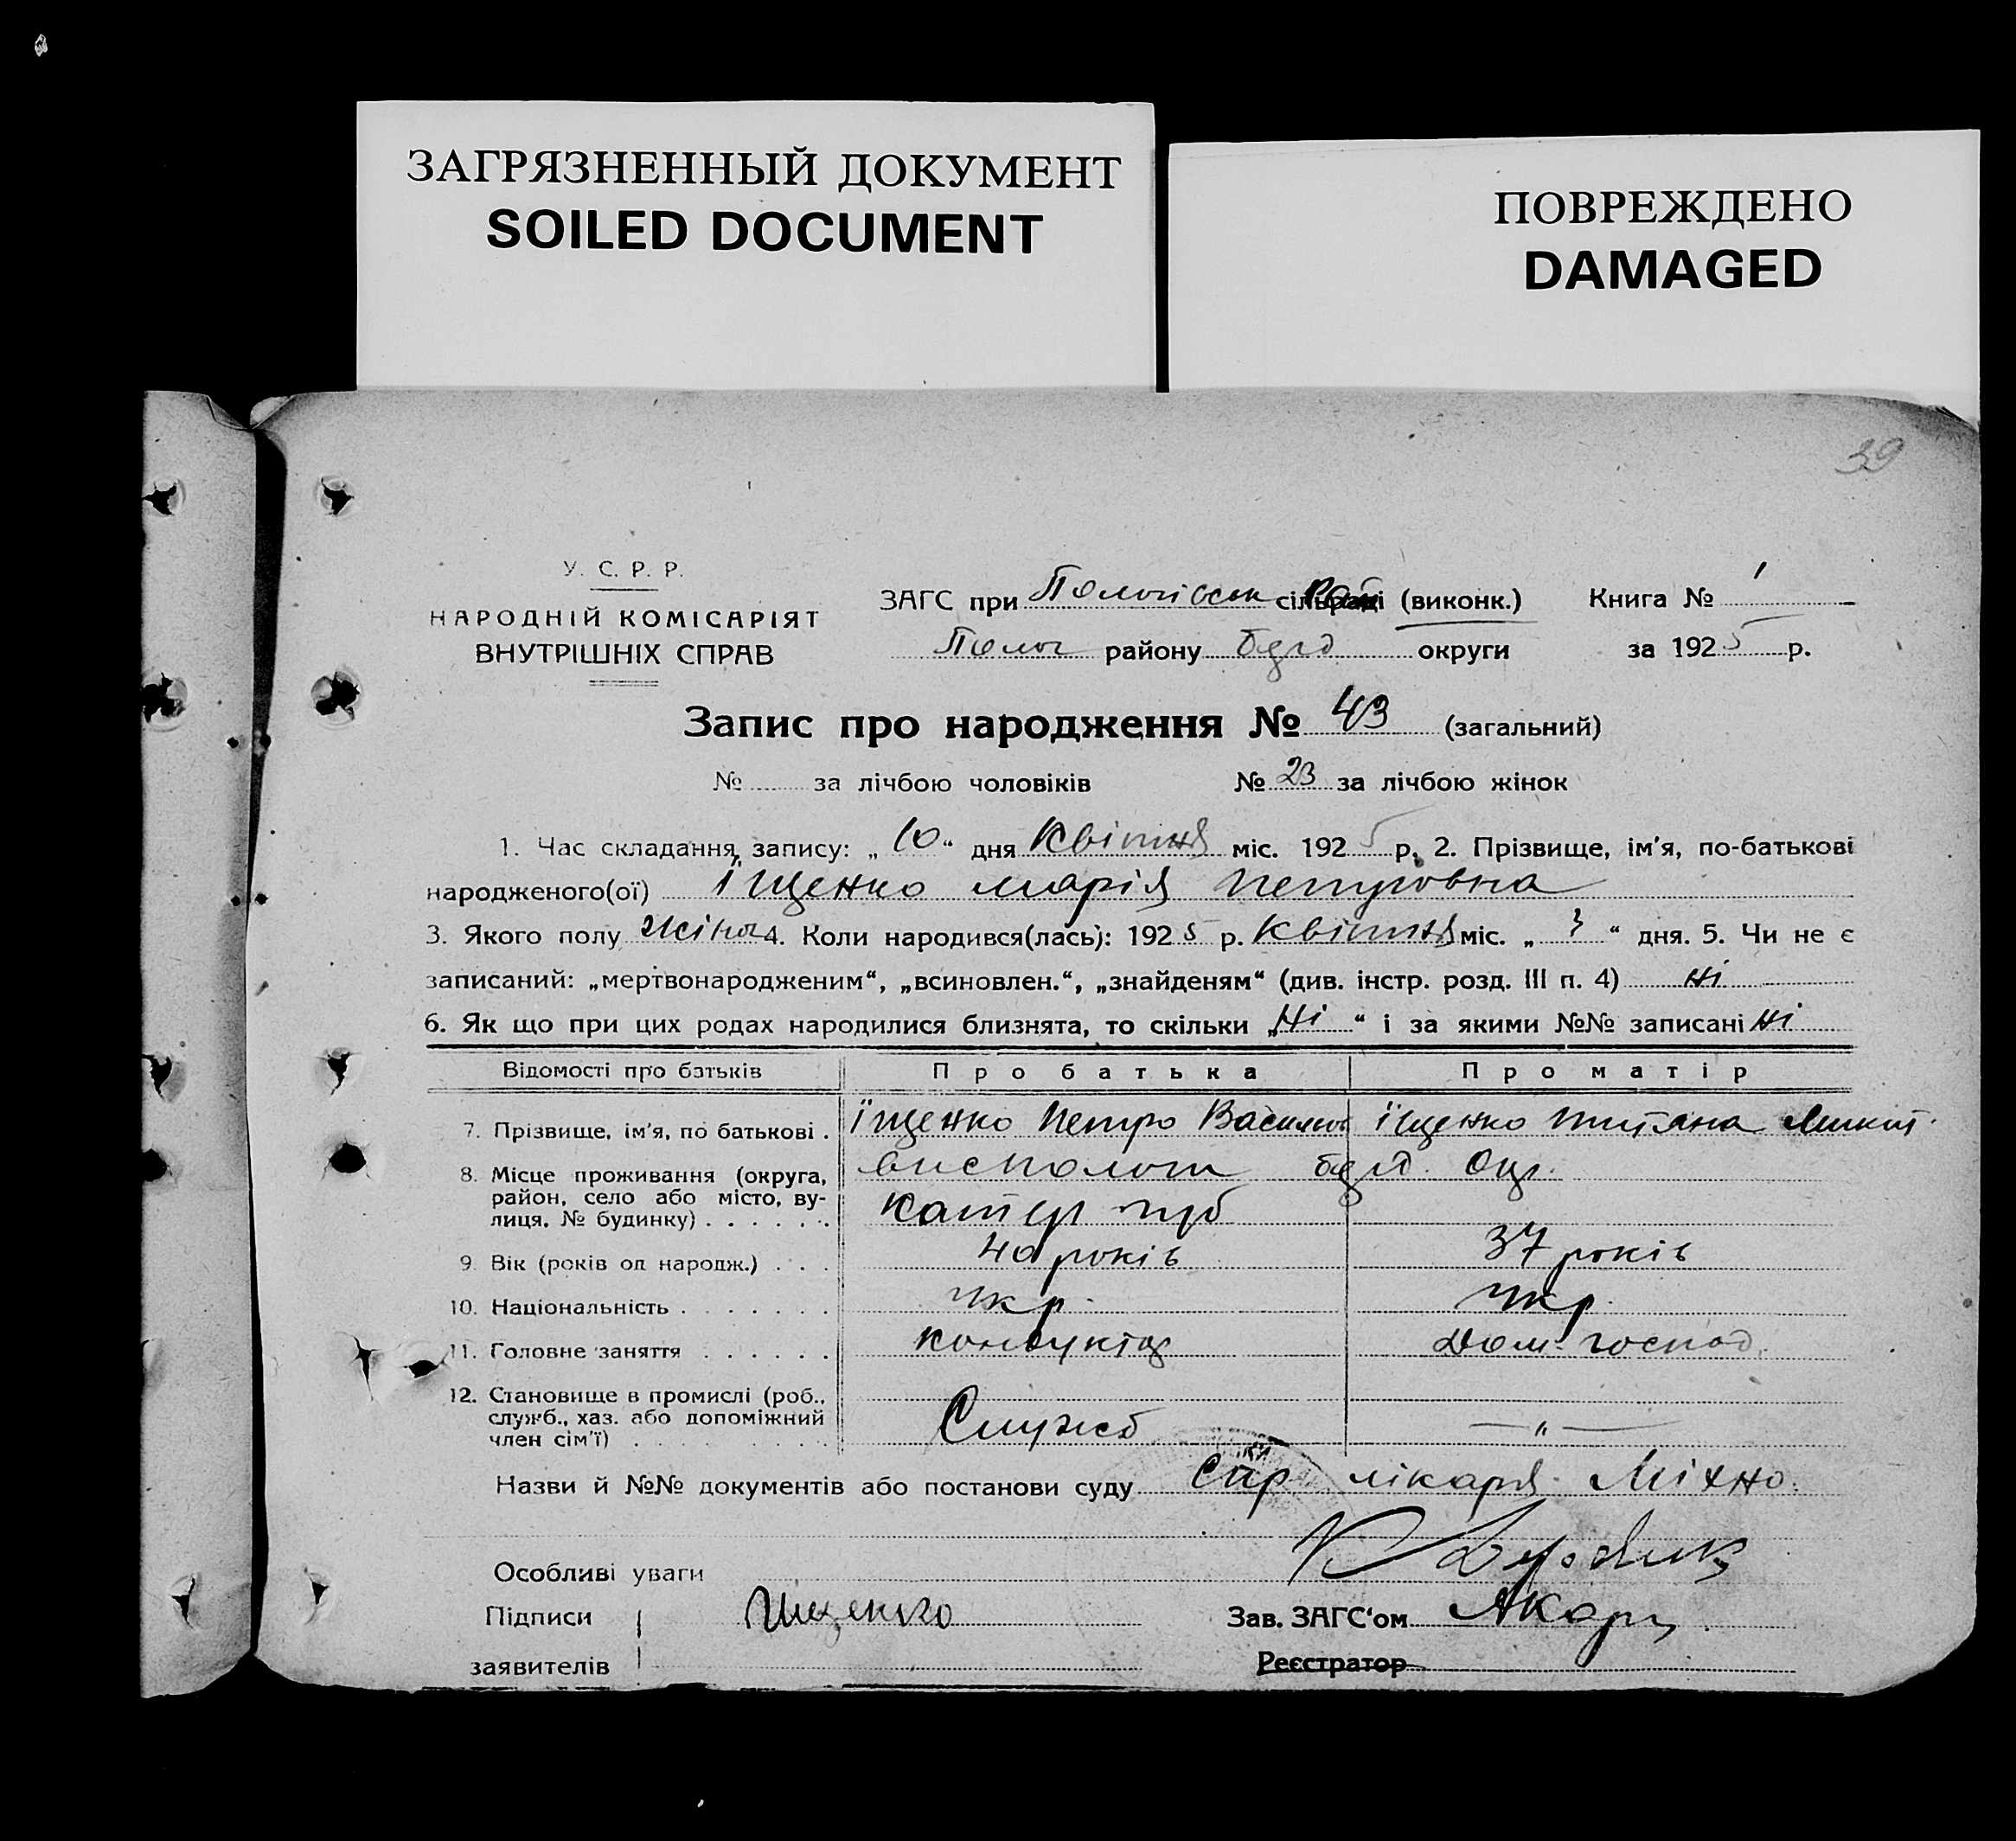 ЗАГРЯЗНЕННЫЙ ДОКУМЕНТ
SOILED DOCUMENT
ПОВРЕЖДЕНО
DAMAGED
39
У. С. Р. Р.
НАРОДНІЙ КОМІСАРІЯТ
ВНУТРІШНІХ СПРАВ
ЗАГС при сільраді (виконк.) Книга № 1
Полог району округи за 1925 р.
Запис про народження № 43 (загальний)
№ за лічбою чоловіків № 23 за лічбою жінок
1. Час складання запису: „ 10 “ дня Квітня міс. 1925 р. 2. Прізвище, ім'я, по-батькові
народженого(ої) Іщенко Марія Петровна
3. Якого полу жіно 4. Коли народився(лась): 1925 р. Квітня міс. „ 3 “ дня. 5. Чи не є
записаний: „мертвонародженим“, „всиновлен.“, „знайденям“ (див. інстр. розд. III п. 4) ні
6. Як що при цих родах народилися близнята, то скільки „ Ні “ і за якими №№ записані Ні
Відомості про батьків Про батька Про матір
7. Прізвище, ім'я, по батькові . Іщенко Петро Васильов Іщенко Титяна Микит.
8. Місце проживання (округа,
район, село або місто, ву-
лиця, № будинку) . . . . . . Катер губ
9. Вік (років од народж.) . . . 40 років 37 років
10. Національність . . . . . . . Укр. Укр.
11. Головне заняття . . . . . . кондуктор Дом. господ.
12. Становище в промислі (роб.,
служб., хаз. або допоміжний
член сім'ї) . . . . . . . . . Служб — „ —
Назви й №№ документів або постанови суду Спр лікаря Міхно.
Особливі уваги
Підписи Іщенко Зав. ЗАГС'ом
заявителів Реєстратор